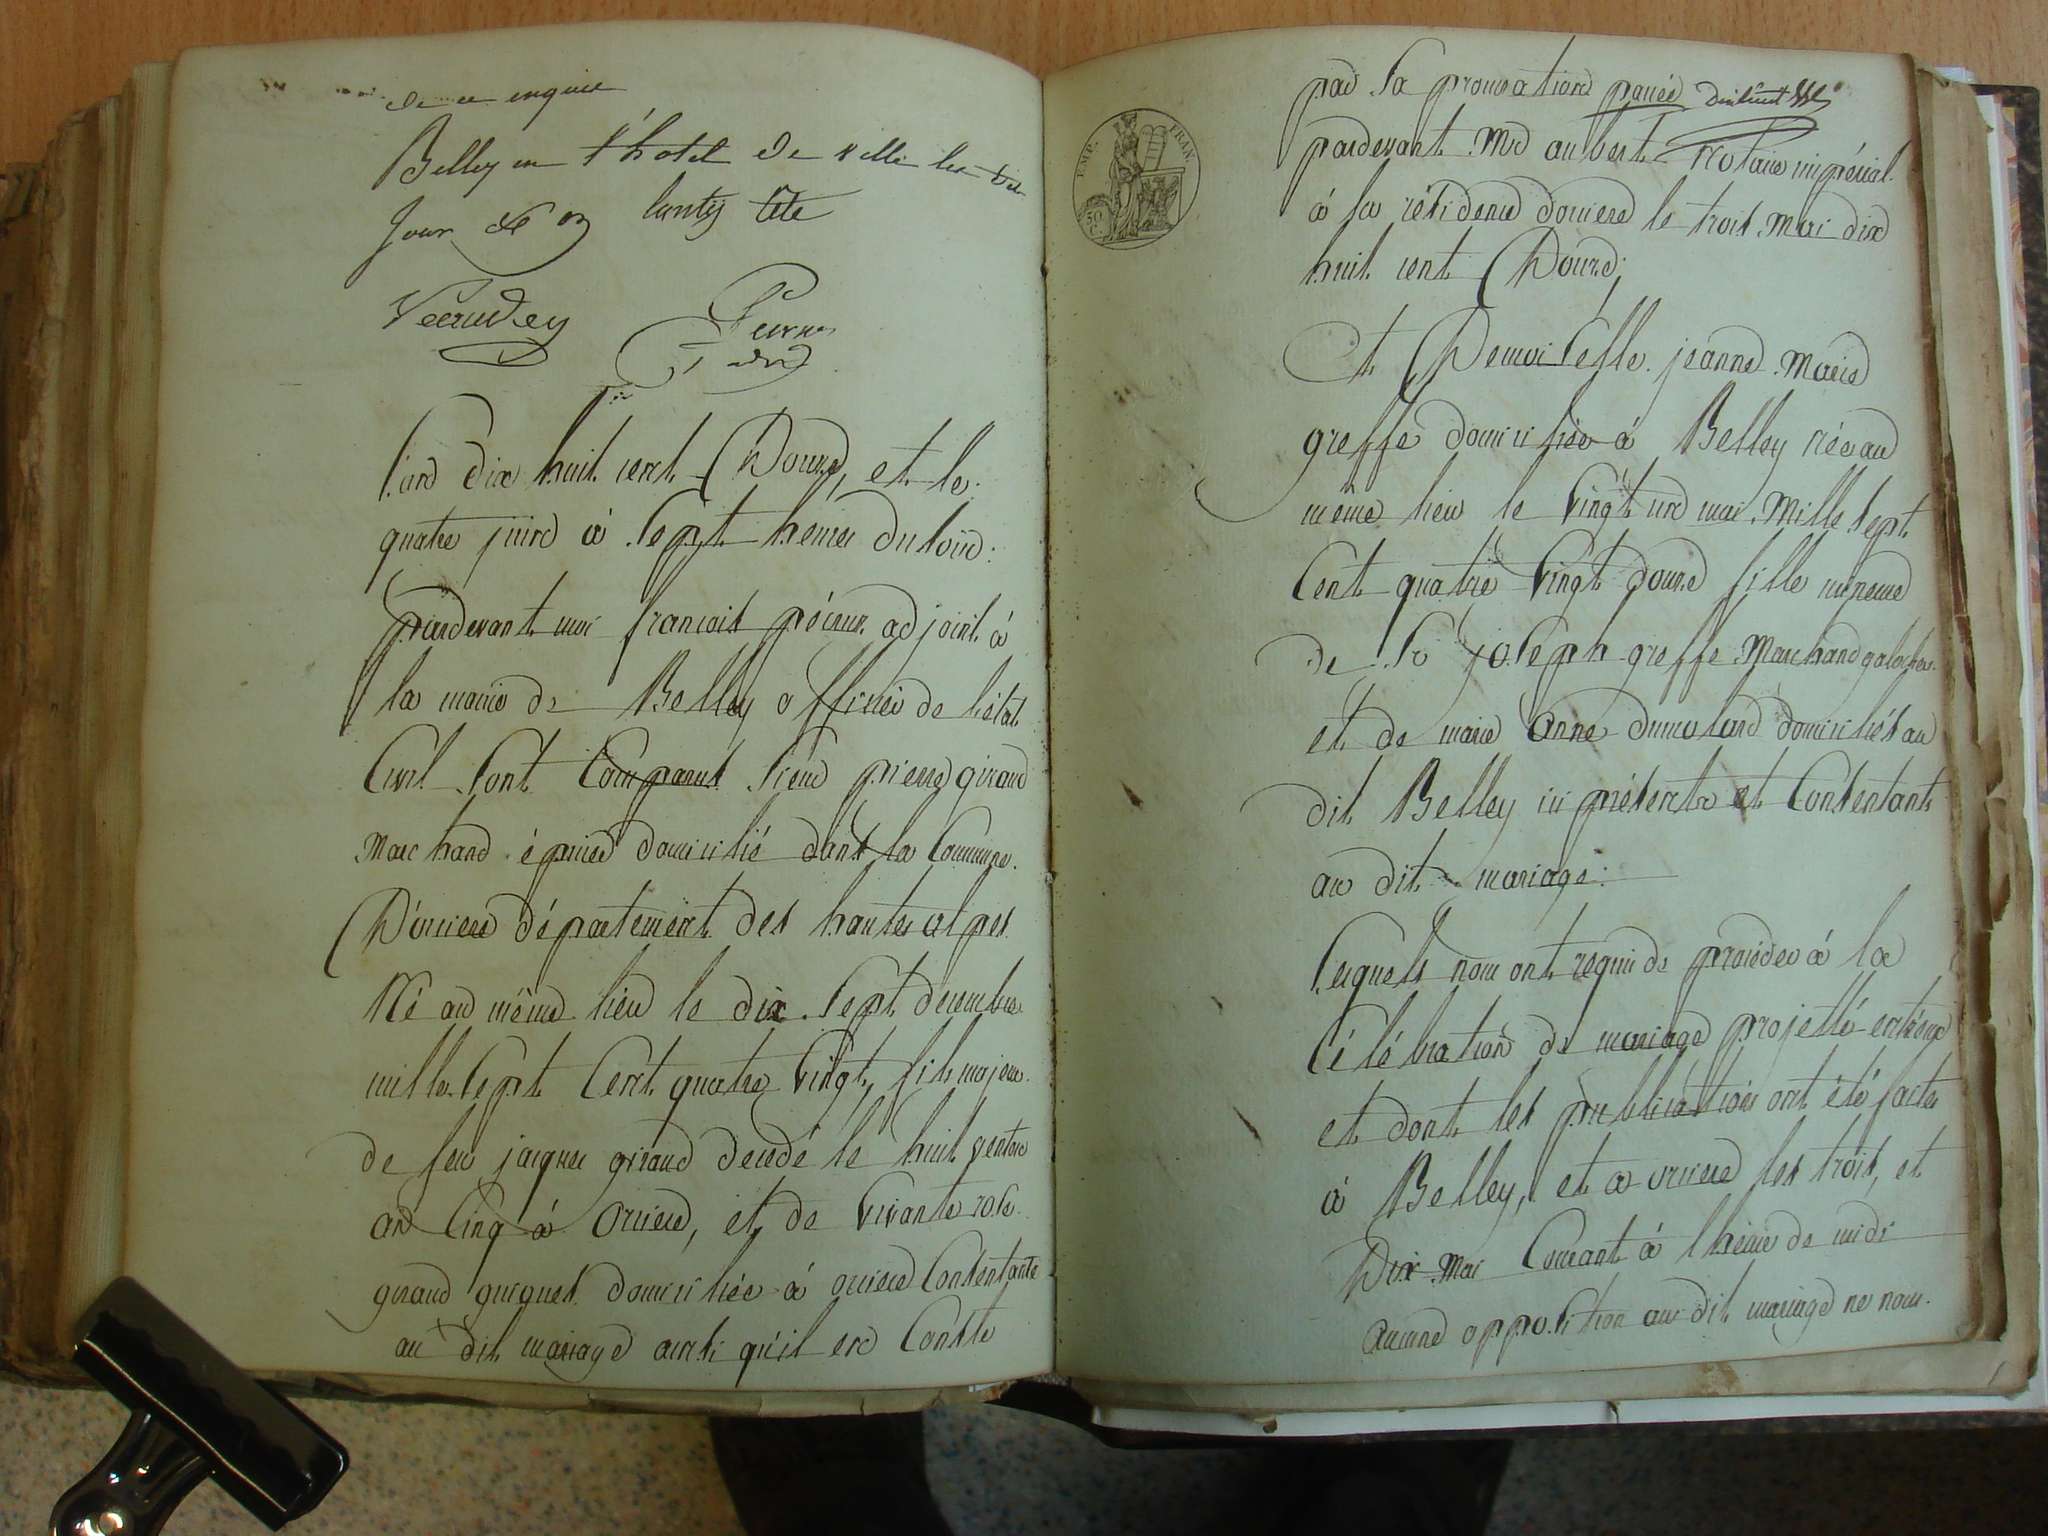 de ce enquis
Belley en l'hotel de ville les dits
Jour & an tete
l'an dix huit cent Douze, et le
quatre juin à sept heures du soir
pardevant moi francois adjoint à
la mairie de Belley officier de l'état
Civil sont Comparus sieur pierre giraud
Marchand épicier domicilié dans la Commune
D'orciere département des hautes alpes
Né au même lieu le dix sept decembre
mille sept Cent quatre vingt, fils majeur
de feu jacques giraud decedé le huit ventose
an Cinq à Orciere, et de vivante rose
giraud guigues domiciliée à orciere Consentante
au dit mariage ainsi qu'il en Conste
par sa procuration passée
pardevant Me aubert notaire impérial
à la résidence dorciere le trois mai dix
huit cent Douze;
Et Demoiselle jeanne Marie
greffe domiciliée à Belley née au
même lieu le vingt un mai Mille sept
Cent quatre vingt douze fille mineure
de Sr joseph greffe Marchand
et de marie anne dumolard domiciliés au
dit Belley ici présents et Consentants
au dit mariage:
lesquels nous ont requis de proceder à la
Célébration de mariage projetté entreux
et dont les publications ont été faites
à Belley, et a orciere les trois, et
Dix Mai Courant à l'heure de midi
Aucune opposition au dit mariage ne nous
EMP. FRAN.
50
C.